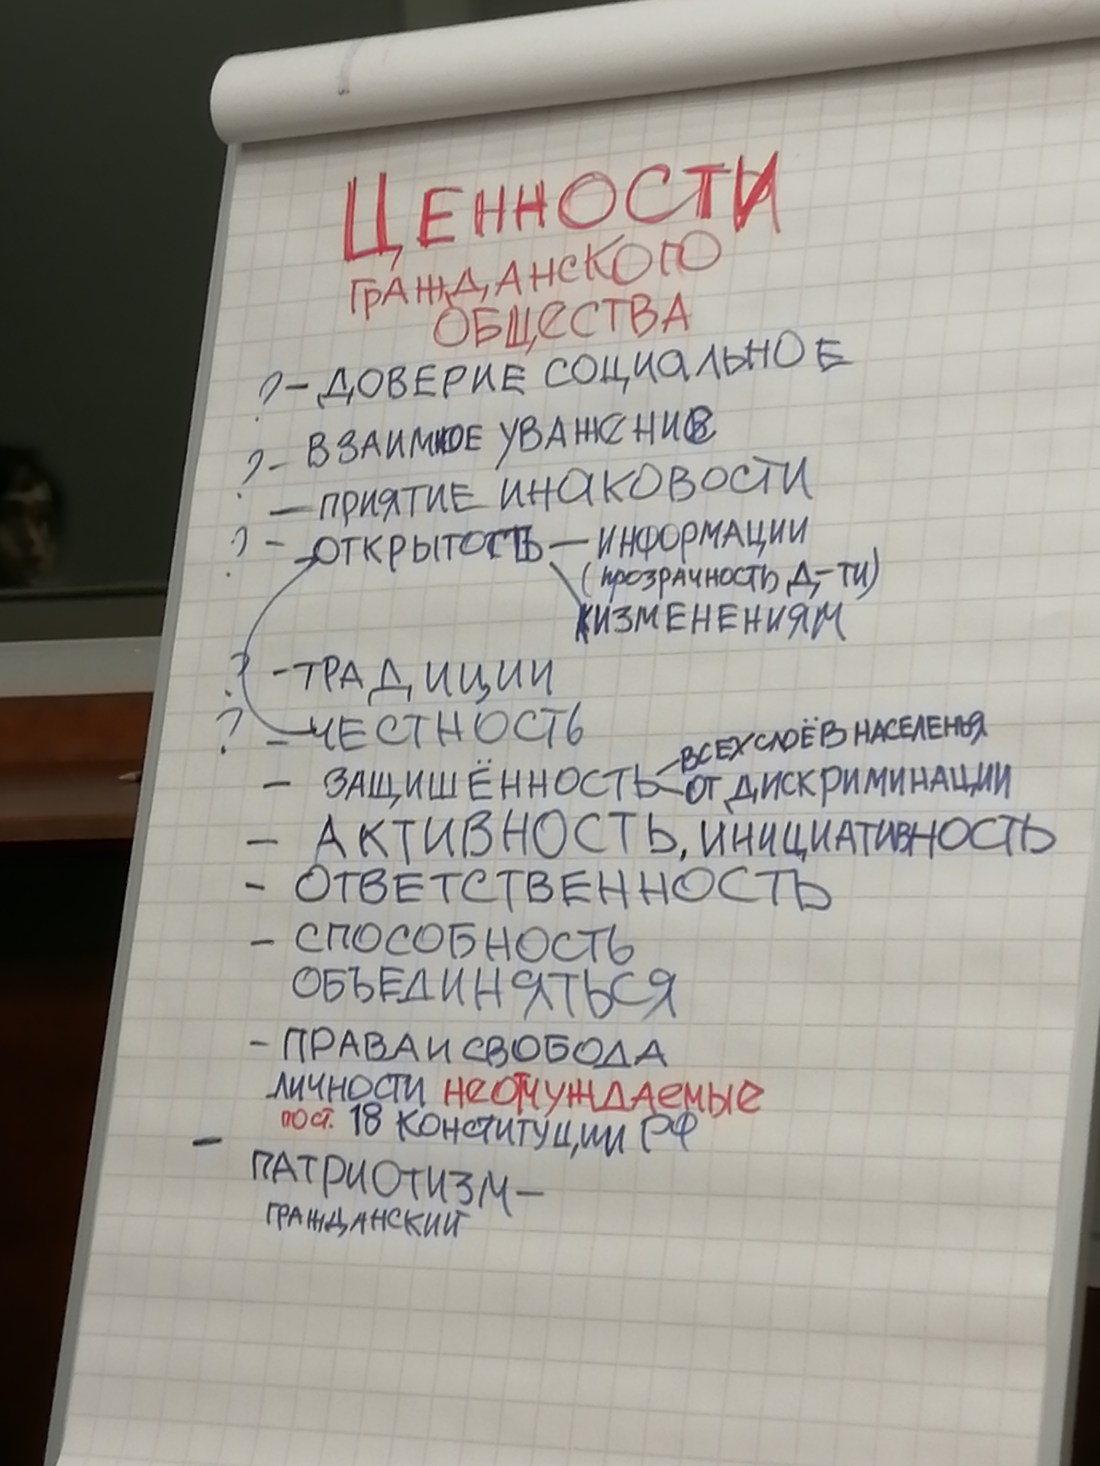 ЦЕННОСТИ
ГРАЖДАНСКОГО
ОБЩЕСТВА
? - ДОВЕРИЕ СОЦИАЛЬНОЕ
? - ВЗАИМНОЕ УВАЖЕНИЕ
- ПРИЯТИЕ ИНАКОВОСТИ
? - ОТКРЫТОСТЬ - ИНФОРМАЦИИ
(ПРОЗРАЧНОСТЬ Д-ТИ)
К ИЗМЕНЕНИЯМ
? - ТРАДИЦИИ
? - ЧЕСТНОСТЬ
- ЗАЩИЩЁННОСТЬ - ВСЕХ СЛОЁВ НАСЕЛЕНЬЯ
- ОТ ДИСКРИМИНАЦИИ
- АКТИВНОСТЬ, ИНИЦИАТИВНОСТЬ
- ОТВЕТСТВЕННОСТЬ
- СПОСОБНОСТЬ
ОБЪЕДИНЯТЬСЯ
- ПРАВА И СВОБОДА
ЛИЧНОСТИ НЕОТЧУЖДАЕМЫЕ
ПОСТ. 18 КОНСТИТУЦИИ РФ
- ПАТРИОТИЗМ -
ГРАЖДАНСКИЙ